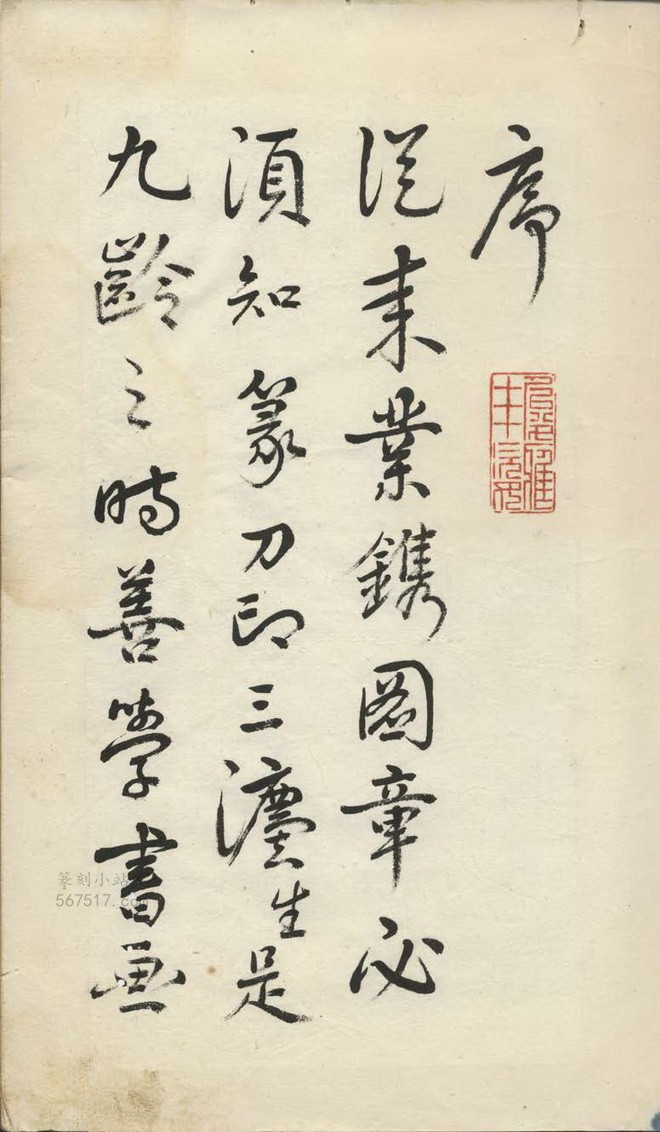 序
從來業鐫圖章必
須知篆刀印三灋生是
九齡之時善學書画
篆刻小站
567517.c